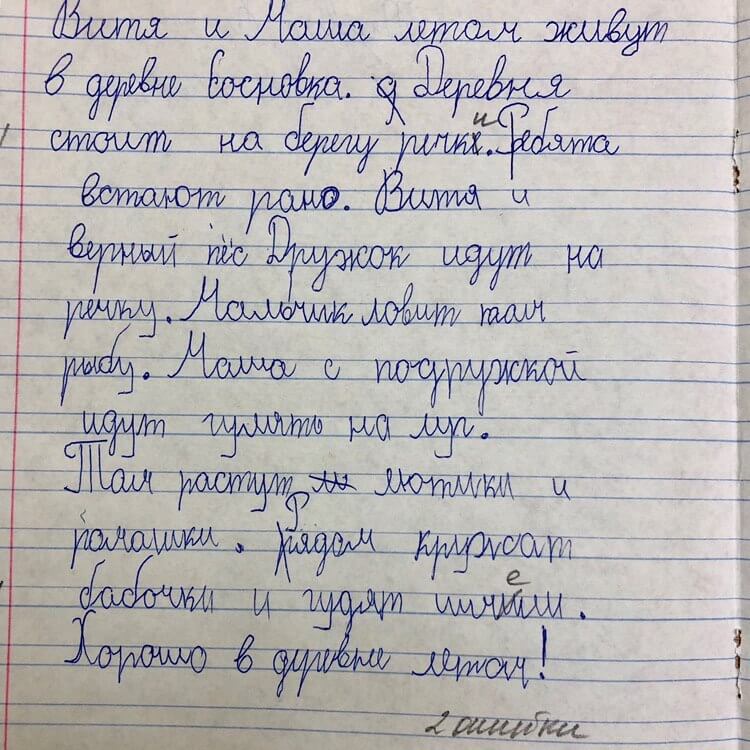 Витя и Маша летом живут
в деревне Сосновка. Деревня
стоит на берегу речки. Ребята
встают рано. Витя и
верный пёс Дружок идут на
речку. Мальчик ловит там
рыбу. Маша с подружкой
идут гулять на луг.
Там растут лютики и
ромашки. Рядом кружат
бабочки и гудят шмели.
Хорошо в деревне летом!
2 ошибки